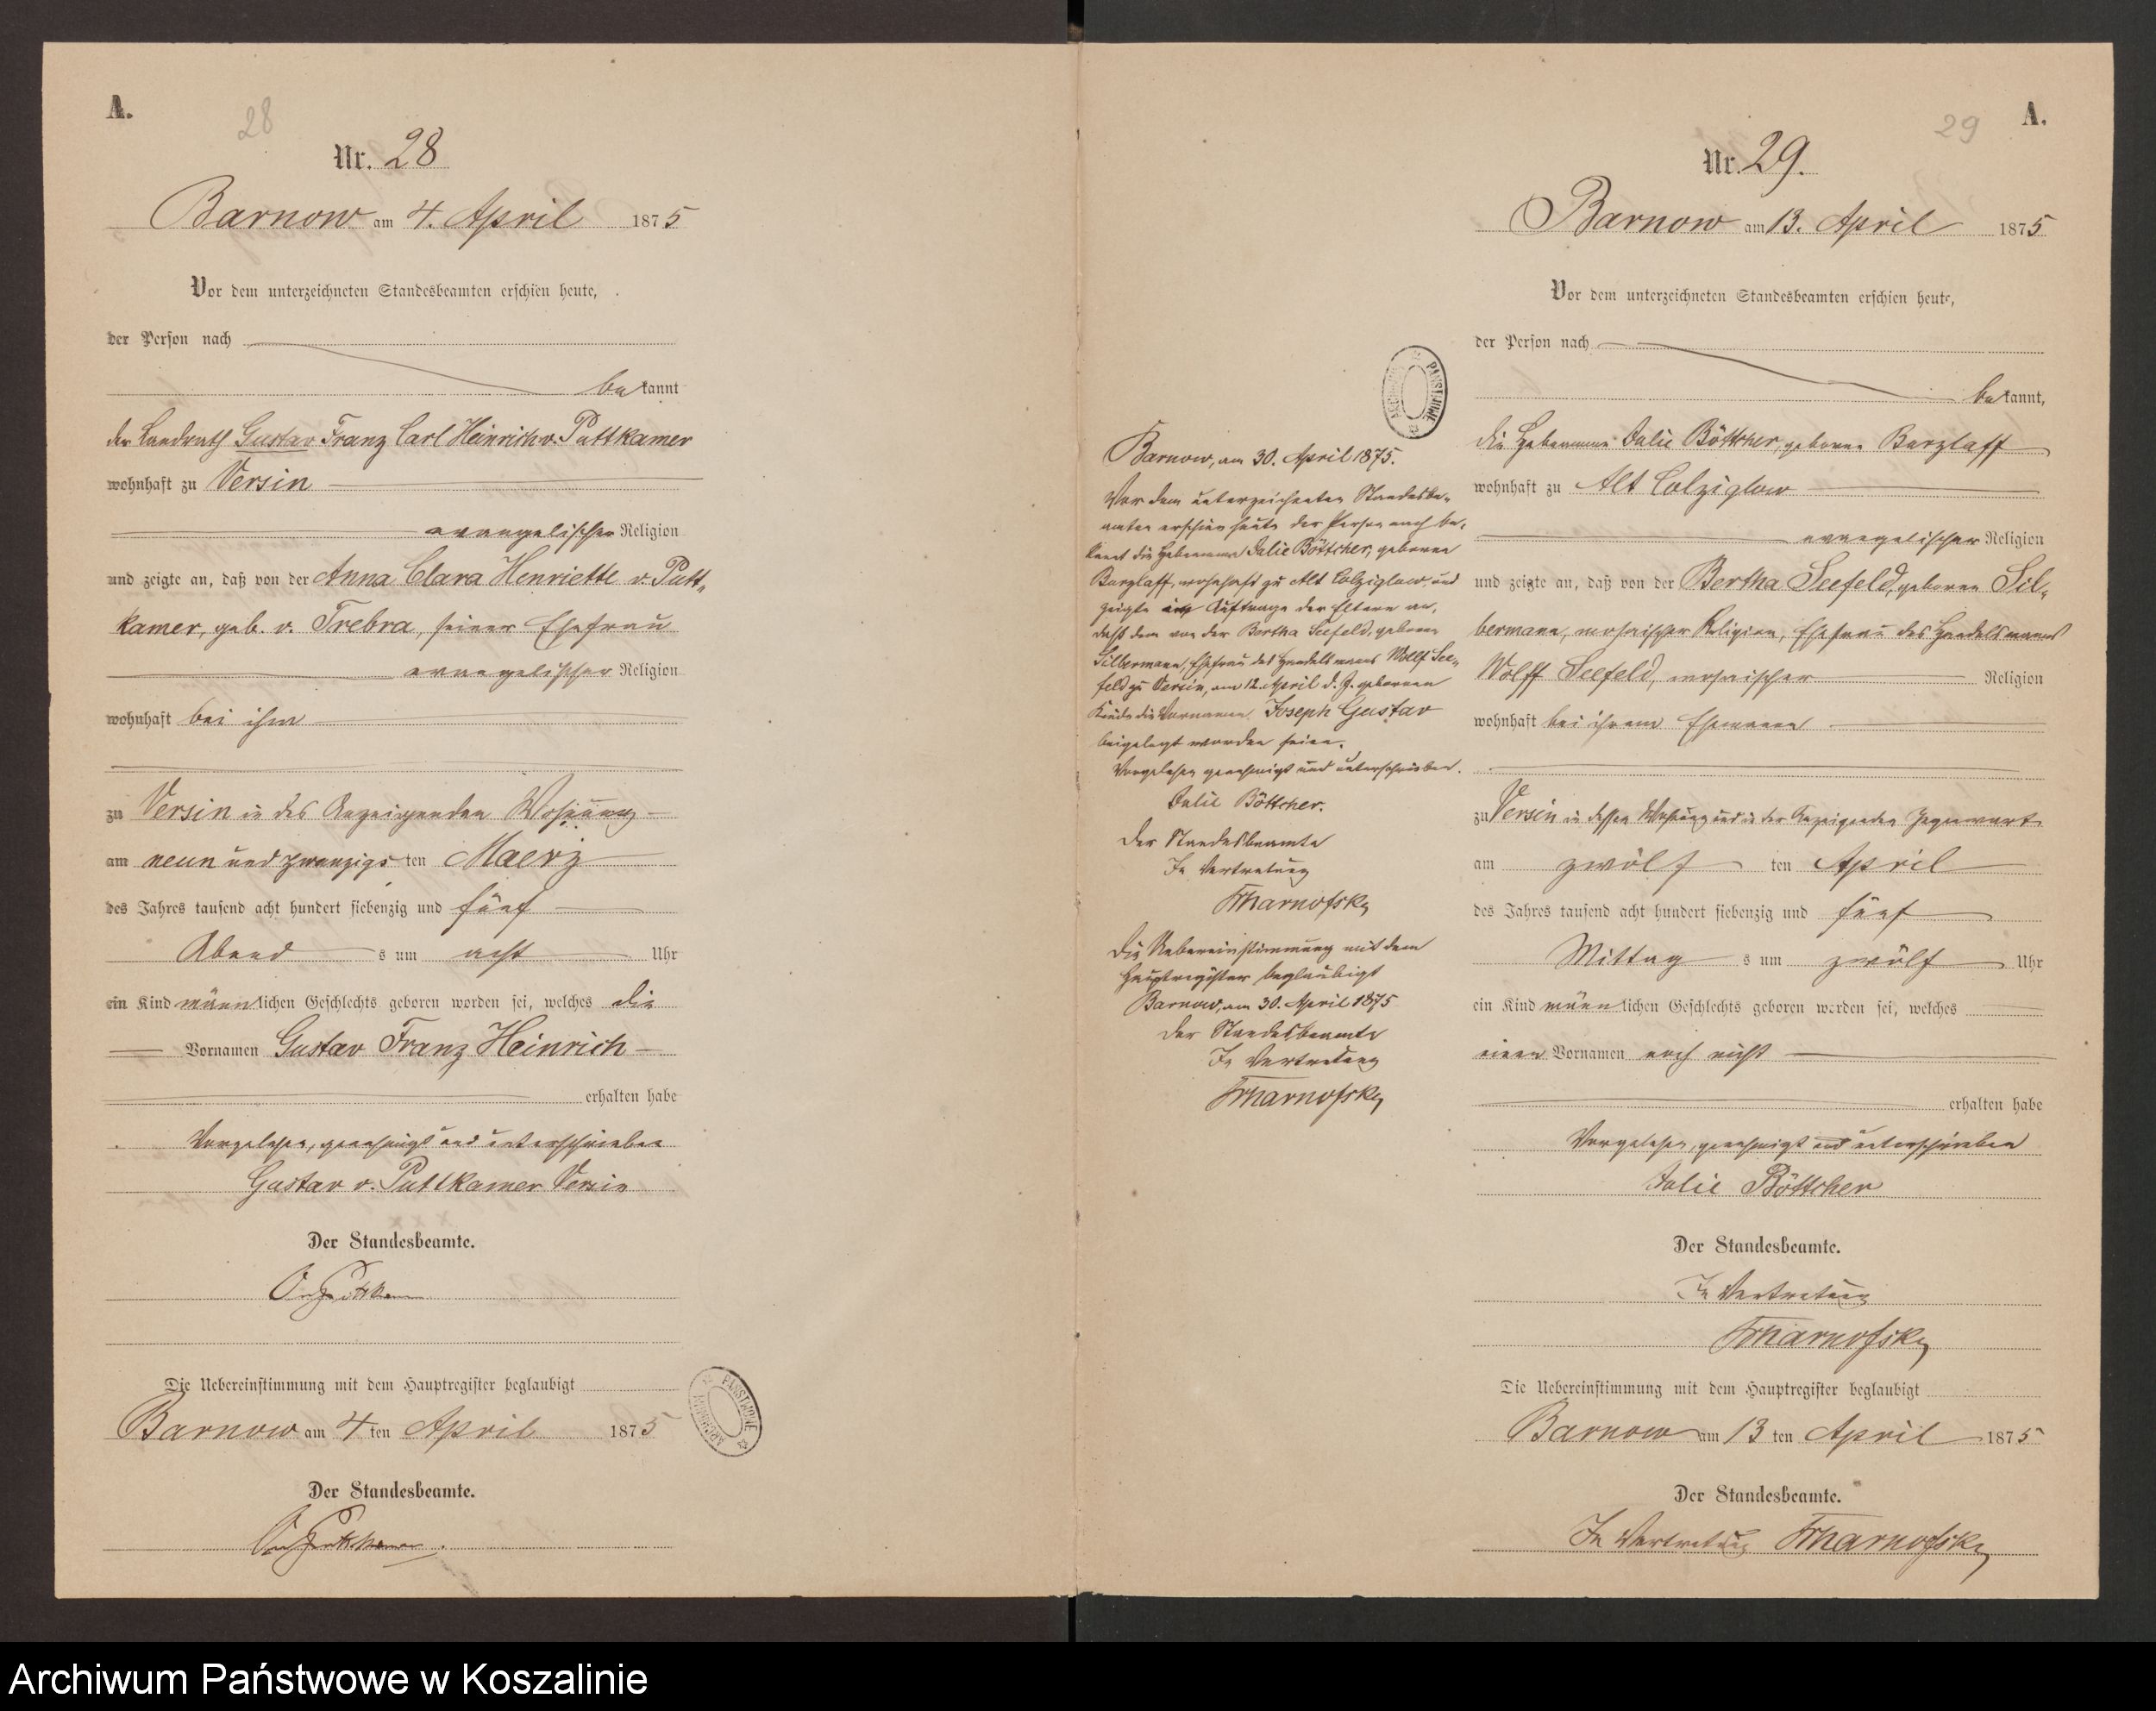 A.
28
Nr. 28
Barnow am 4. April 1875
Vor dem unterzeichneten Standesbeamten erschien heute,
der Person nach
bekannt
der Landrath Gustav Franz Carl Heinrich v. Puttkamer
wohnhaft zu Versin
evangelischer Religion
und zeigte an, daß von der Anna Clara Henriette v. Putt-
kamer, geb. v. Trebra, seiner Ehefrau
evangelischer Religion
wohnhaft bei ihm
zu Versin in des Anzeigenden Wohnung
am neun und zwanzigsten Maerz
des Jahres tausend acht hundert siebenzig und fünf
Abends um acht Uhr
ein Kind männlichen Geschlechts geboren worden sei, welches die
Vornamen Gustav Franz Heinrich
erhalten habe
Vorgelesen, genehmigt und unterschrieben
Gustav v. Puttkamer Versin
Der Standesbeamte.
Die Uebereinstimmung mit dem Hauptregister beglaubigt
Barnow am 4ten April 1875
Der Standesbeamte.
ARCHIWUM PAŃSTWOWE
ARCHIWUM PAŃSTWOWE
Barnow, am 30. April 1875.
Vor dem unterzeichneten Standesbe-
amten erschien heute der Person nach be-
kannt die Hebeamme Julie Böttcher, geborene
Barzlaff, wohnhaft zu Alt Colziglow, und
zeigte im Auftrage der Eltern an,
daß dem von der Bertha Seefeld, geborene
Silbermann, Ehefrau des Handelsmanns Wolff See-
feld zu Versin, am 12. April d. J. geborenen
Kinde die Vornamen Joseph Gustav
beigelegt worden seien.
Vorgelesen genehmigt und unterschrieben.
Julie Böttcher.
Der Standesbeamte
In Vertretung
Die Uebereinstimmung mit dem
Hauptregister beglaubigt
Barnow, am 30. April 1875
Der Standesbeamte
In Vertretung
A.
29
Nr. 29.
Barnow am 13. April 1875
Vor dem unterzeichneten Standesbeamten erschien heute,
der Person nach
bekannt,
die Hebeamme Julie Böttcher, geborene Barzlaff
wohnhaft zu Alt Colziglow
evangelischer Religion
und zeigte an, daß von der Bertha Seefeld, geborene Sil-
bermann, mosaischer Religion, Ehefrau des Handelsmanns
Wolff Seefeld, mosaischer Religion
wohnhaft bei ihrem Ehemann
zu Versin in dessen Wohnung und in der Anzeigenden Gegenwart
am zwölften April
des Jahres tausend acht hundert siebenzig und fünf
Mittags um zwölf Uhr
ein Kind männlichen Geschlechts geboren worden sei, welches
einen Vornamen noch nicht
erhalten habe
Vorgelesen, genehmigt und unterschrieben
Julie Böttcher
Der Standesbeamte.
In Vertretung
Die Uebereinstimmung mit dem Hauptregister beglaubigt
Barnow am 13ten April 1875
Der Standesbeamte.
In Vertretung
Archiwum Państwowe w Koszalinie